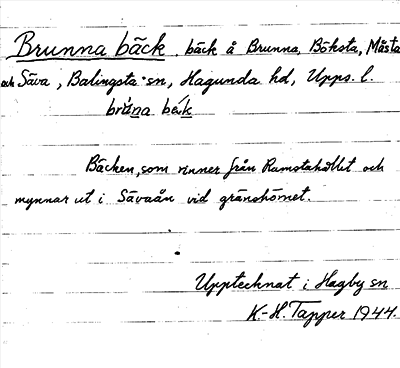 Brunna bäck, bäck å Brunna, Böksta, Måsta
och Säva, Balingsta sn, Hagunda hd, Upps. l.
brùna bä́k
Bäcken, som rinner från Ramstahållet och
mynnar ut i Sävaån vid gränshörnet.
Upptecknat i Hagby sn
K-H. Tapper 1944.